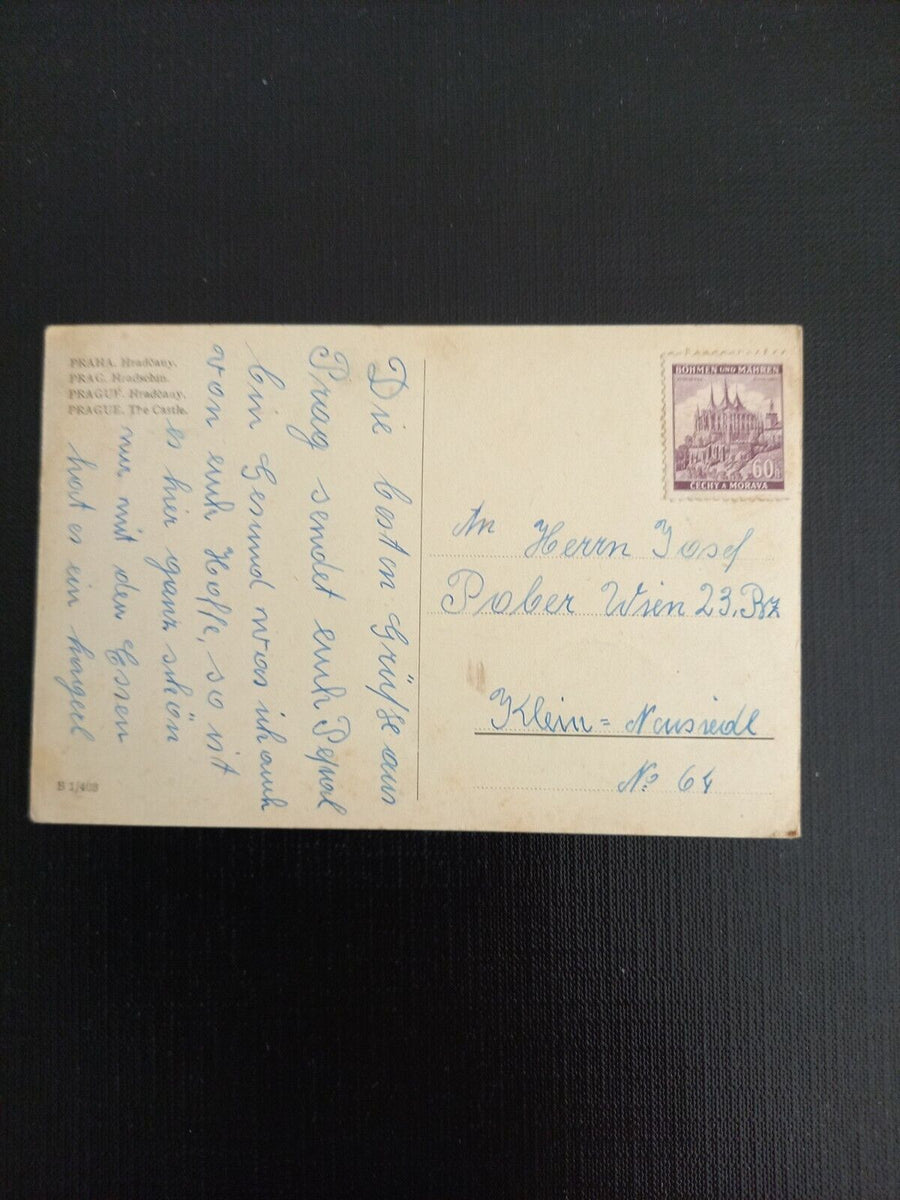 PRAHA. Hradčany.
PRAG. Hradschin.
PRAGUE. Hradčany.
PRAGUE. The Castle.
Die besten Grüße aus
Prag sendet euch Pepal
bin Gesund was ich auch
von euch Hoffe, so ist
es hier ganz schön
nur mit den Essen
hat es ein
B 1/408
BÖHMEN UND MÄHREN
60h
ČECHY A MORAVA
An Herrn Josef
Pober Wien 23. Bz
Klein=Neusiedl
No 64